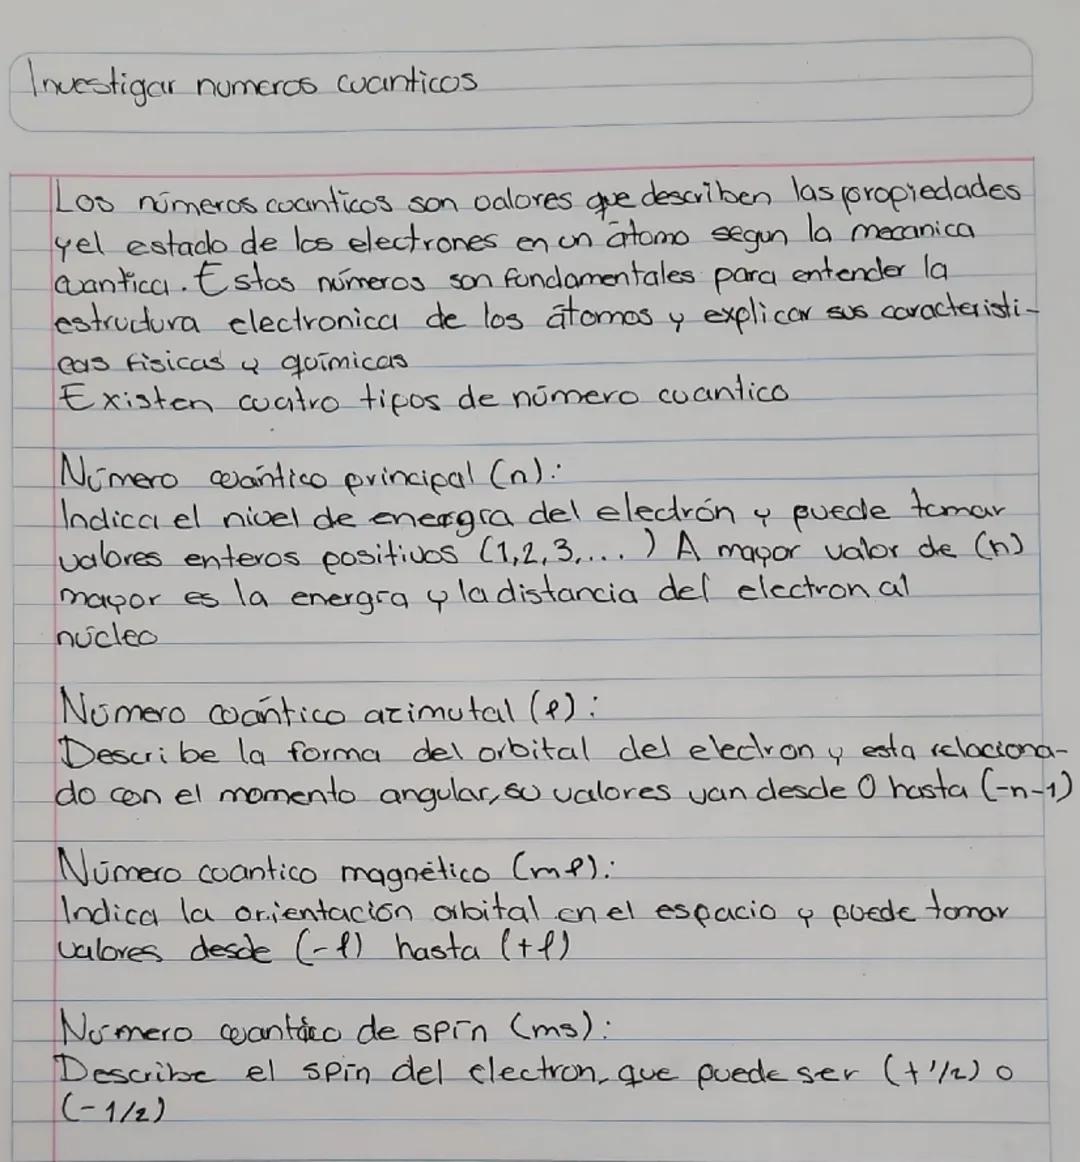 Investigar numeros cuanticos
Los números cuanticos son valores que describen las propiedades
y el estado de los electrones en un átomo segun la mecanica
cuantica. Estos números son fundamentales para entender la
estructura electronica de los átomos y explicar sus caracteristi-
cas fisicas y químicas
Existen cuatro tipos de número cuantico
Número cuántico principal (n):
Indica el nivel de energía del electrón y puede tomar
valores enteros positivos (1,2,3,...) A mayor valor de (n)
mayor es la energía y la distancia del electron al
núcleo
Número cuántico azimutal (ℓ):
Describe la forma del orbital del electron y esta relaciona-
do con el momento angular, su valores van desde 0 hasta (-n-1)
Número cuantico magnético (mℓ):
Indica la orientación orbital en el espacio y puede tomar
valores desde (-ℓ) hasta (+ℓ)
Número cuantico de spín (ms):
Describe el spin del electron, que puede ser (+1/2) o
(-1/2)